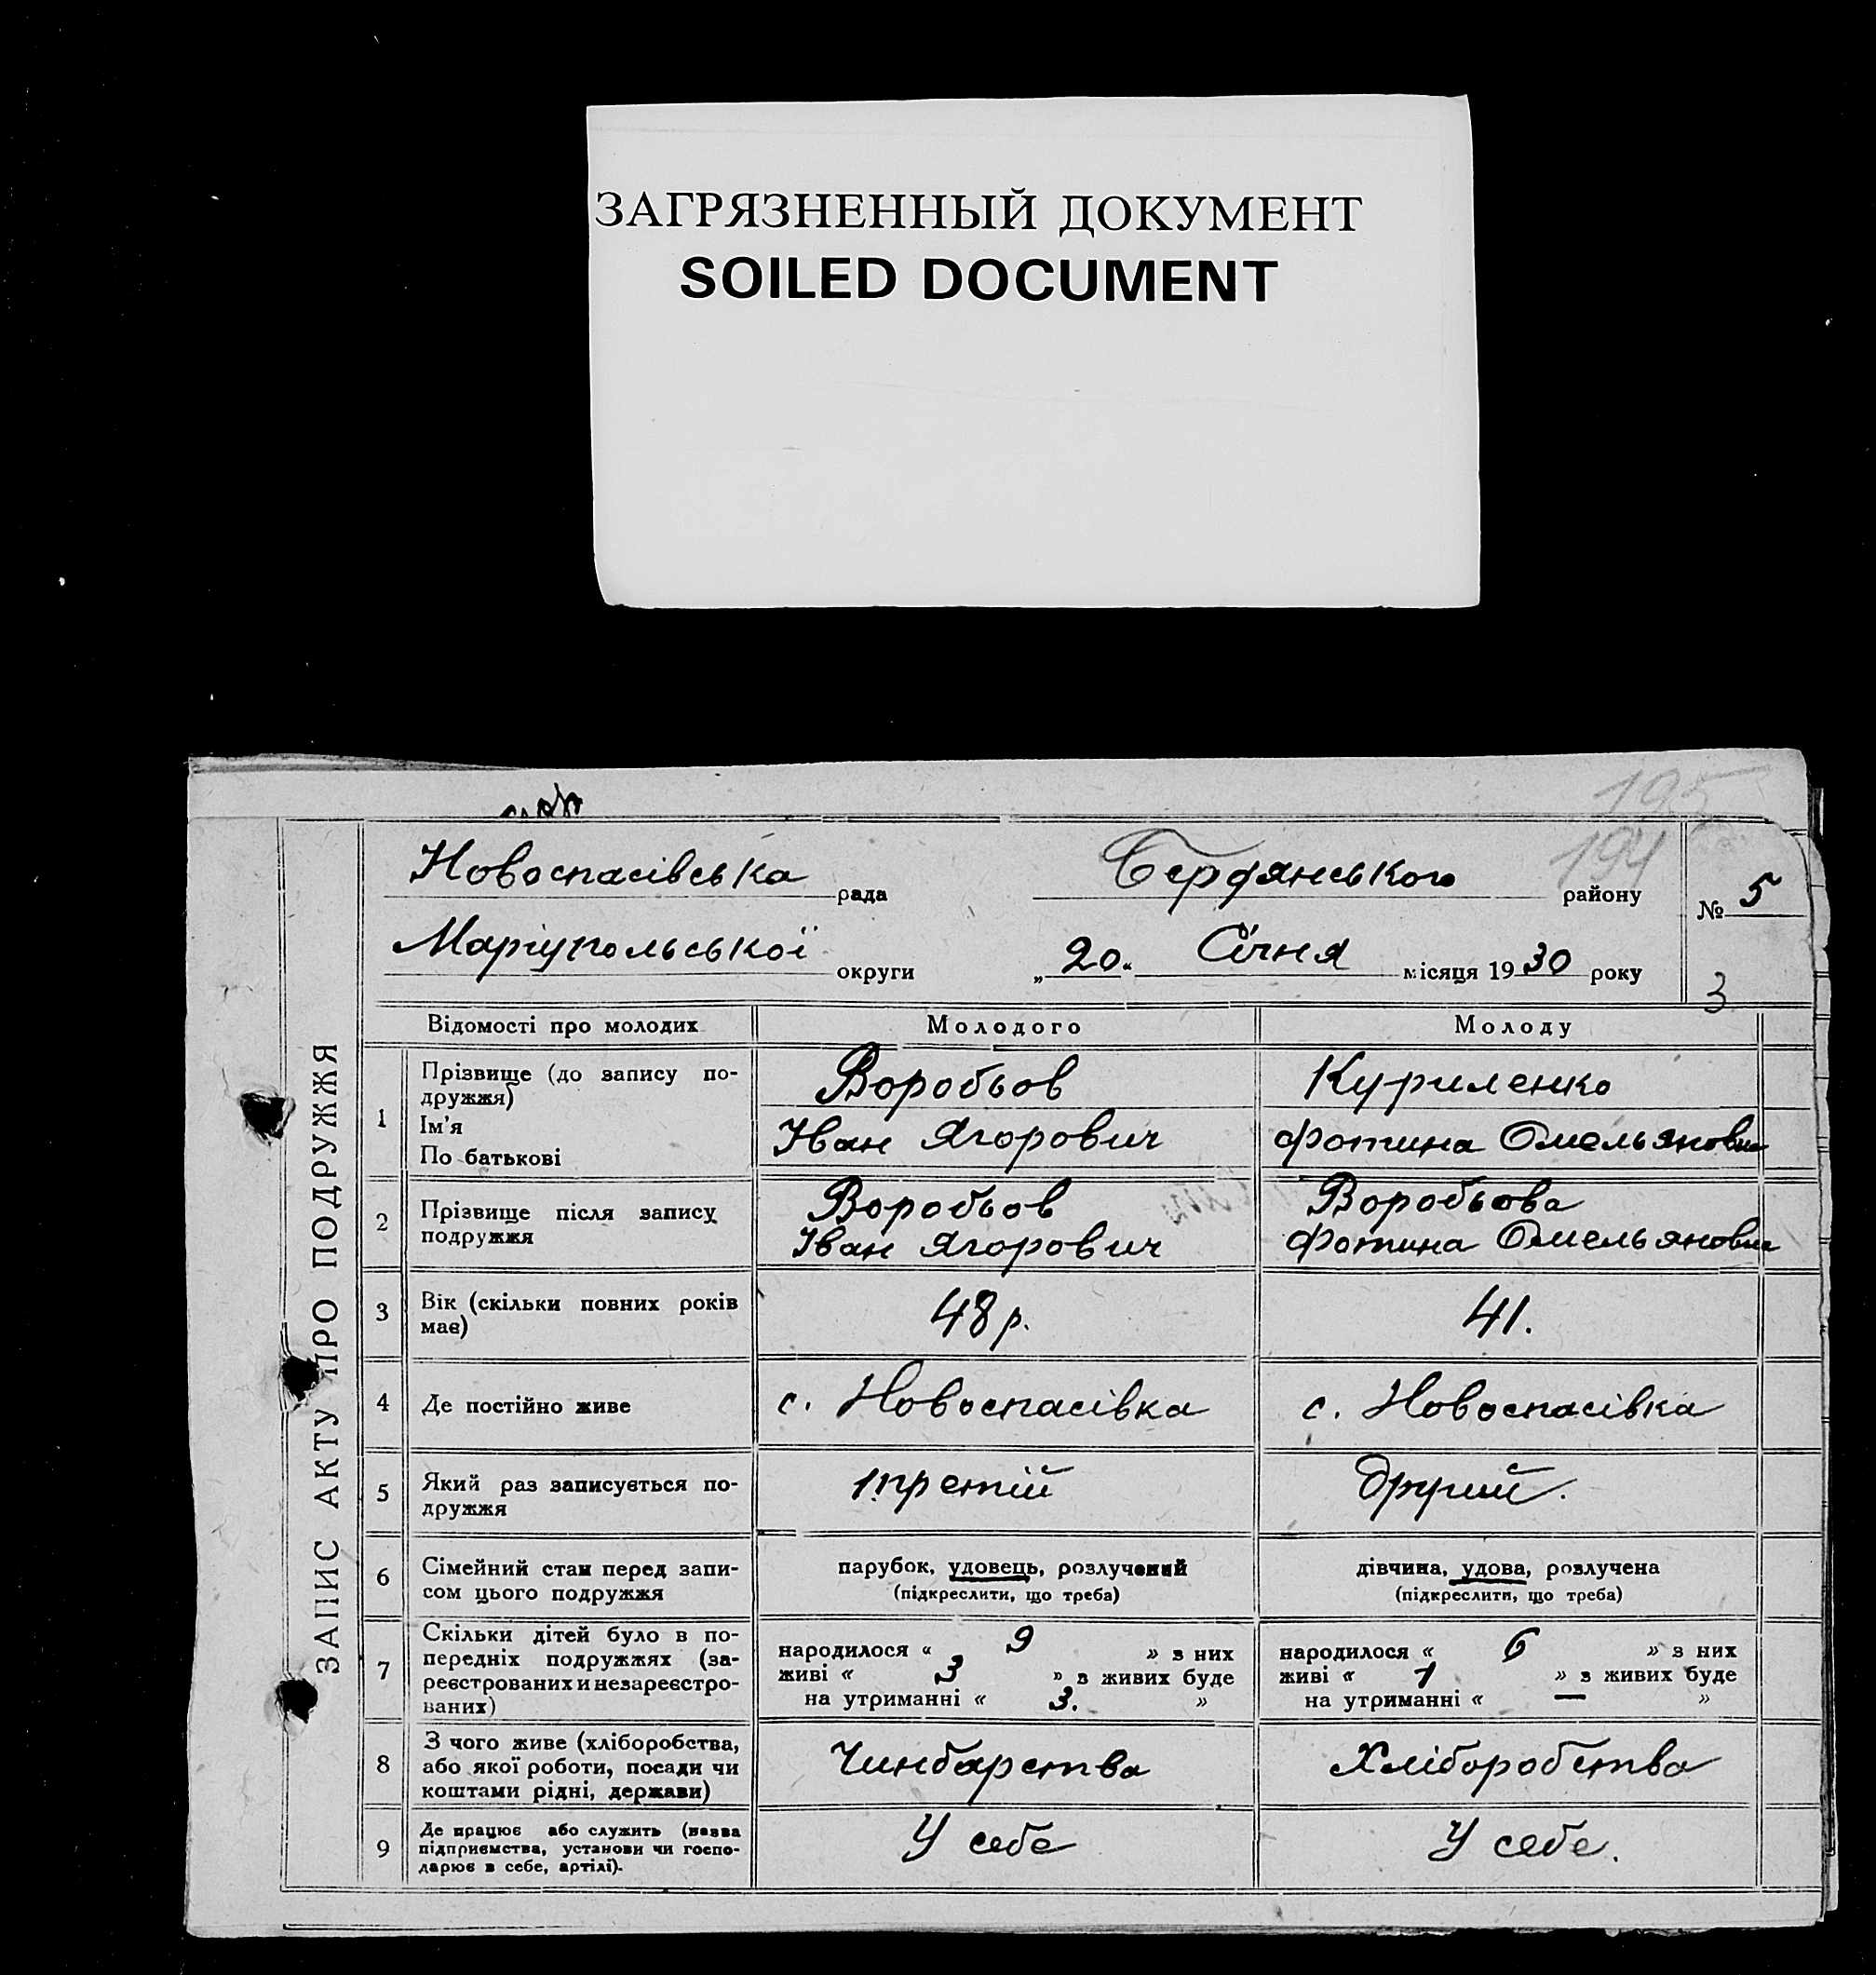 ЗАГРЯЗНЕННЫЙ ДОКУМЕНТ
SOILED DOCUMENT
195
194
Новоспасівська рада Бердянського району № 5
Маріупольської округи „20“ Січня місяця 1930 року
3
ЗАПИС АКТУ ПРО ПОДРУЖЖЯ
Відомості про молодих Молодого Молоду
1 Прізвище (до запису по-
дружжя)
Ім'я
По батькові
Воробьов
Іван Ягорович
Куриленко
Фотина Омельяновна
2 Прізвище після запису
подружжя
Воробьов
Іван Ягорович
Воробьова
Фотина Омельяновна
3 Вік (скільки повних років
має)
48 р.
41.
4 Де постійно живе с. Новоспасівка с. Новоспасівка
5 Який раз записується по-
дружжя
третій
другий.
6 Сімейний стан перед запи-
сом цього подружжя
парубок, удовець, розлучений
(підкреслити, що треба)
дівчина, удова, розлучена
(підкреслити, що треба)
7 Скільки дітей було в по-
передніх подружжях (за-
реєстрованих и незареєстро-
ваних)
народилося « 9 » з них
живі « 3 » з живих буде
на утриманні « 3. »
народилося « 6 » з них
живі « 1 » з живих буде
на утриманні « — »
8 З чого живе (хліборобства,
або якої роботи, посади чи
коштами рідні, держави)
Чинбарства
Хліборобства
9 Де працює або служить (назва
підприємства, установи чи госпо-
дарює в себе, артілі).
У себе
У себе.